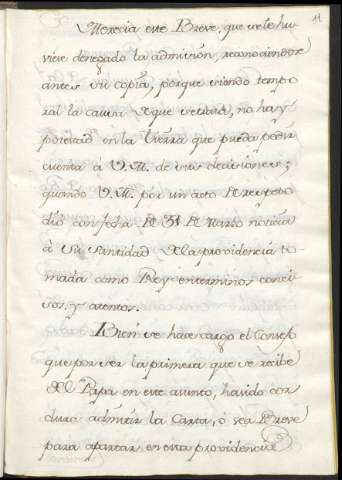 11
Merecia este Breve, que se le hu-
viese denegado la admision, reconociendose
antes su copia, porque siendo tempo-
ral la causa de que se trata, no hay
potestad en la tierra que pueda pedir
cuenta à V.M. de sus decisiones;
quando V.M. por un acto de respeto
dio con fecha de 31 de Marzo noticia
à Su Santidad de la providencia to-
mada como Rey en terminos conci-
sos, y atentos.
Bien se hace cargo el Consejo
que por ser la primera que se recibe
del Papa en este asunto, havido cor-
dura admitir la Carta, ó sea Breve
para apartar en esta providencia